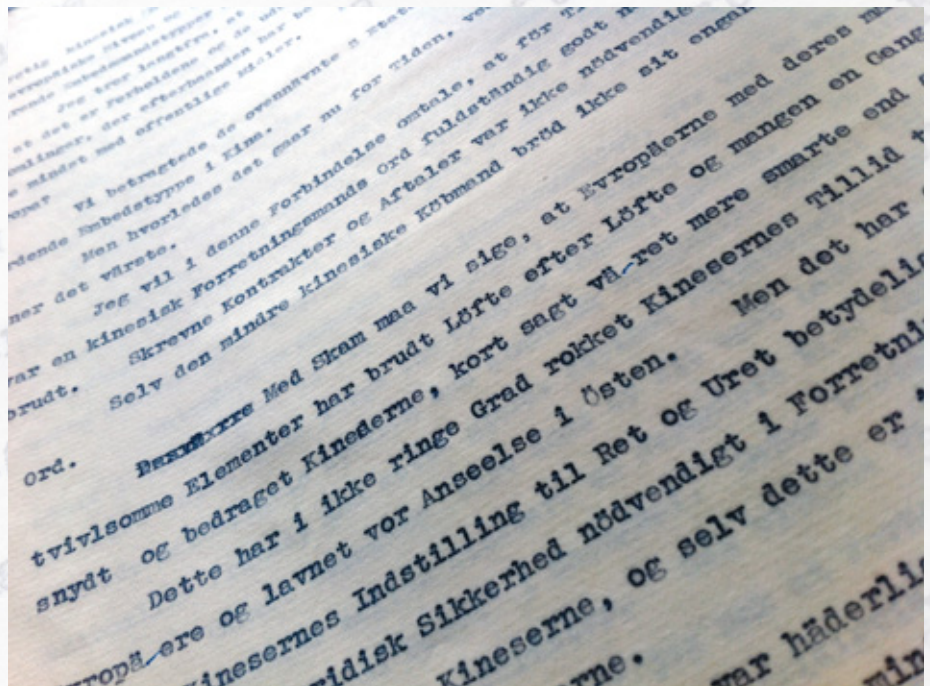 Embedsmandstyper
det er Forholdene og
der efterhaanden har
mindet med offentlige Midler.
Vi betragtede de ovennävnte 3
Embedstype i Kina.
Men hvorledes det gaar nu for Tiden,
ner det värste.
Jeg vil i denne Forbindelse omtale, at för
var en kinesisk Forretningsmands Ord fuldständig godt
brudt. Skrevne Kontrakter og Aftaler var ikke nödvendig
Selv den mindre kinesiske Köbmand bröd ikke sit engan
Ord. Med Skam maa vi sige, at Evropäerne med deres
tvivlsomme Elementer har brudt Löfte efter Löfte og mangen en Gang
snydt og bedraget Kineserne, kort sagt vä ret mere smarte end
Dette har i ikke ringe Grad rokket Kinesernes Tillid t
uropä ere og lavnet vor Anseelse i Östen. Men det har
Kinesernes Indstilling til Ret og Uret betydelig
ridisk Sikkerhed nödvendigt i Forretni
Kineserne, og selv dette er
erne.
var häderli
min